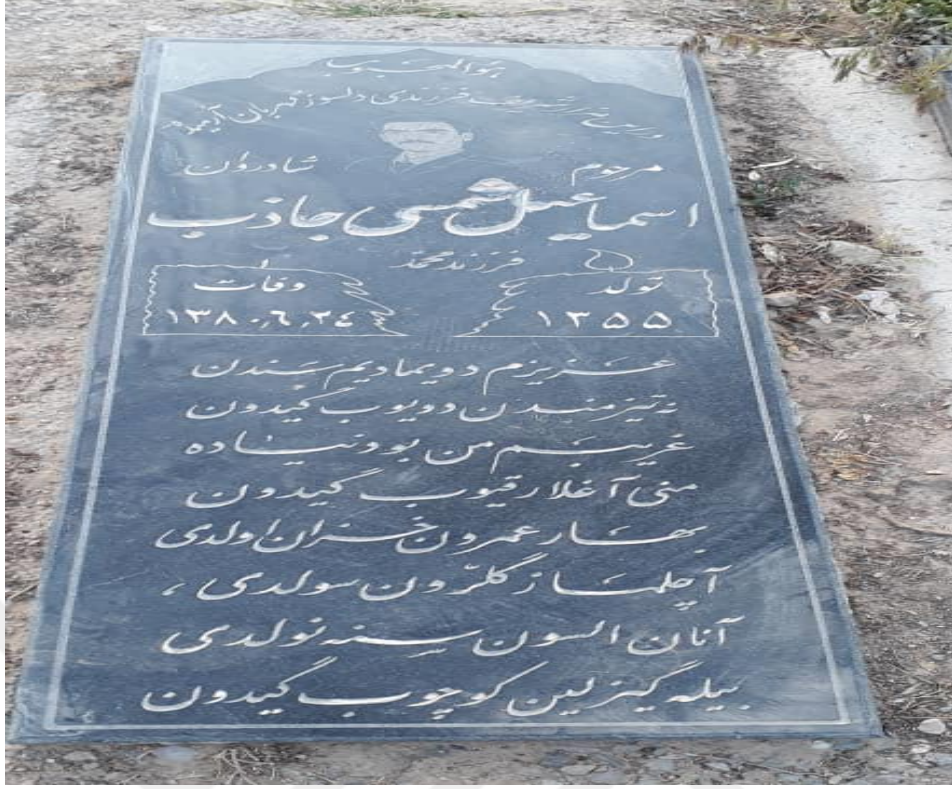 هوالمحبوب
در این تربت شریف فرزندی دلسوز مهربان آرمیده
مرحوم شادروان
اسماعیل شمسی جاذب
فرزند محمد
تولد وفات
۱۳۵۵ ۱۳۸۰،۶،۲۴
عزیزم دویمادیم سندن
نه تیز مندن دویوب گیدون
غریبم من بو دنیاده
منی آغلار قیوب گیدون
بهار عمرون خزان اولدی
آچلماز گلرون سولدی،
آنان السون سنه نولدی
بیله گیزلین کوچوب گیدون